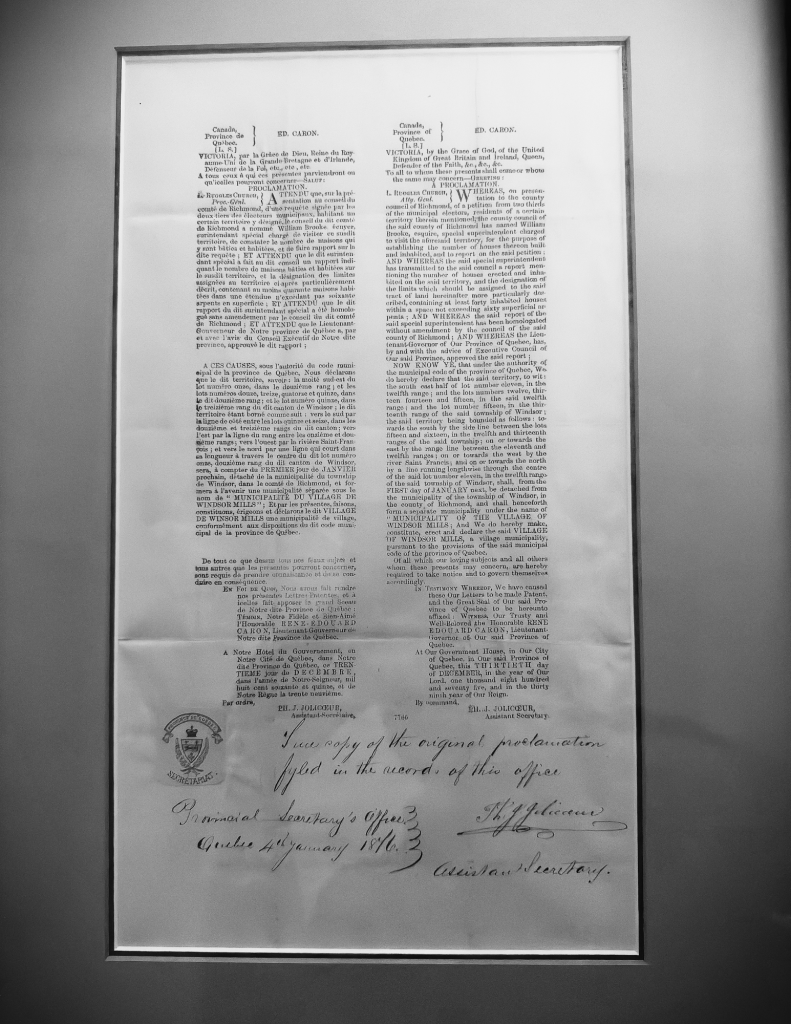 Canada,
Province de
Québec.
[L. S.]
ED. CARON.
VICTORIA, par la Grâce de Dieu, Reine du Roy-
aume-Uni de la Grande-Bretagne et d'Irlande,
Défenseur de la Foi, etc., etc., etc.
A tous ceux à qui ces présentes parviendront ou
qu'icelles pourront concerner—SALUT:
PROCLAMATION.
L. RUGGLES CHURCH,
Proc.-Génl.
ATTENDU que, sur la pré-
sentation au conseil du
comté de Richmond, d'une requête signée par les
deux tiers des électeurs municipaux, habitant un
certain territoire y désigné, le conseil du dit comté
de Richmond a nommé William Brooke, écuyer,
surintendant spécial chargé de visiter ce susdit
territoire, de constater le nombre de maisons qui
y sont bâties et habitées, et de faire rapport sur la
dite requête; ET ATTENDU que le dit surinten-
dant spécial a fait au dit conseil un rapport indi-
quant le nombre de maisons bâties et habitées sur
le susdit territoire, et la désignation des limites
assignées au territoire ci-après particulièrement
décrit, contenant au moins quarante maisons habi-
tées dans une étendue n'excédant pas soixante
arpents en superficie; ET ATTENDU que le dit
rapport du dit surintendant spécial a été homolo-
gué sans amendement par le conseil du dit comté
de Richmond; ET ATTENDU que le Lieutenant-
Gouverneur de Notre province de Québec a, par
et avec l'avis du Conseil Exécutif de Notre dite
province, approuvé le dit rapport;
A CES CAUSES, sous l'autorité du code muni-
cipal de la province de Québec, Nous déclarons
que le dit territoire, savoir: la moitié sud-est du
lot numéro onze, dans le douzième rang; et les
lots numéros douze, treize, quatorze et quinze, dans
le dit douzième rang; et le lot numéro quinze, dans
le treizième rang du dit canton de Windsor; le dit
territoire étant borné comme suit: vers le sud par
la ligne de côté entre les lots quinze et seize, dans les
douzième et treizième rangs du dit canton; vers
l'est par la ligne du rang entre les onzième et dou-
zième rangs; vers l'ouest par la rivière Saint-Fran-
çois; et vers le nord par une ligne qui court dans
sa longueur à travers le centre du dit lot numéro
onze, douzième rang du dit canton de Windsor,
sera, à compter du PREMIER jour de JANVIER
prochain, détaché de la municipalité du township
de Windsor, dans le comté de Richmond, et for-
mera à l'avenir une municipalité séparée sous le
nom de "MUNICIPALITÉ DU VILLAGE DE
WINDSOR MILLS"; Et par les présentes, faisons,
constituons, érigeons et déclarons le dit VILLAGE
DE WINSOR MILLS une municipalité de village,
conformément aux dispositions du dit code muni-
cipal de la province de Québec.
De tout ce que dessus tous nos féaux sujets et
tous autres que les présentes pourront concerner,
sont requis de prendre connaissance et de se con-
duire en conséquence.
EN FOI DE QUOI, Nous avons fait rendre
nos présentes Lettres-Patentes, et à
icelles fait apposer le grand Sceau
de Notre dite Province de Québec:
TÉMOIN, Notre Fidèle et Bien-Aimé
l'Honorable RENÉ-EDOUARD
CARON, Lieutenant-Gouverneur de
Notre dite Province de Québec.
A Notre Hôtel du Gouvernement, en
Notre Cité de Québec, dans Notre
dite Province de Québec, ce TREN-
TIEME jour de DECEMBRE,
dans l'année de Notre-Seigneur, mil
huit cent soixante et quinze, et de
Notre Règne la trente neuvième.
Par ordre,
PH. J. JOLICŒUR,
Assistant-Secrétaire.
Canada,
Province of
Quebec.
[L. S.]
ED. CARON.
VICTORIA, by the Grace of God, of the United
Kingdom of Great Britain and Ireland, Queen,
Defender of the Faith, &c., &c., &c.
To all to whom these presents shall come or whom
the same may concern—GREETING:
A PROCLAMATION.
L. RUGGLES CHURCH,
Atty. Genl.
WHEREAS, on presen-
tation to the county
council of Richmond, of a petition from two thirds
of the municipal electors, residents of a certain
territory therein mentioned, the county council of
the said county of Richmond has named William
Brooke, esquire, special superintendent charged
to visit the aforesaid territory, for the purpose of
establishing the number of houses thereon built
and inhabited, and to report on the said petition;
AND WHEREAS the said special superintendent
has transmitted to the said council a report men-
tioning the number of houses erected and inha-
bited on the said territory, and the designation of
the limits which should be assigned to the said
tract of land hereinafter more particularly des-
cribed, containing at least forty inhabited houses
within a space not exceeding sixty superficial ar-
pents; AND WHEREAS the said report of the
said special superintendent has been homologated
without amendment by the council of the said
county of Richmond; AND WHEREAS the Lieu-
tenant-Governor of Our Province of Quebec, has,
by and with the advice of Executive Council of
Our said Province, approved the said report;
NOW KNOW YE, that under the authority of
the municipal code of the province of Quebec, We
do hereby declare that the said territory, to wit:
the south east half of lot number eleven, in the
twelfth range; and the lots numbers twelve, thir-
teen fourteen and fifteen, in the said twelfth
range; and the lot number fifteen, in the thir-
teenth range of the said township of Windsor;
the said territory being bounded as follows: to-
wards the south by the side line between the lots
fifteen and sixteen, in the twelfth and thirteenth
ranges of the said township; on or towards the
east by the range line between the eleventh and
twelfth ranges; on or towards the west by the
river Saint Francis; and on or towards the north
by a line running lengthwise through the centre
of the said lot number eleven, in the twelfth range
of the said township of Windsor, shall, from the
FIRST day of JANUARY next, be detached from
the municipality of the township of Windsor, in
the county of Richmond, and shall henceforth
form a separate municipality under the name of
"MUNICIPALITY OF THE VILLAGE OF
WINDSOR MILLS; And We do hereby make,
constitute, erect and declare the said VILLAGE
OF WINDSOR MILLS, a village municipality,
pursuant to the provisions of the said municipal
code of the province of Quebec.
Of all which our loving subjects and all others
whom these presents may concern, are hereby
required to take notice and to govern themselves
accordingly.
IN TESTIMONY WHEREOF, We have caused
these Our Letters to be made Patent,
and the Great Seal of Our said Pro-
vince of Quebec to be hereunto
affixed: WITNESS, Our Trusty and
Well-Beloved the Honorable RENÉ
EDOUARD CARON, Lieutenant-
Governor of Our said Province of
Quebec.
At Our Government House, in Our City
of Quebec, in Our said Province of
Quebec, this THIRTIRTH day
of DECEMBER, in the year of Our
Lord, one thousand eight hundred
and seventy five, and in the thirty
ninth year of Our Reign.
By command,
PH. J. JOLICŒUR,
Assistant Secretary.
7766
PROVINCE DE QUEBEC
SECRÉTARIAT.
True copy of the original proclamation
fyled in the records of this office
Provincial Secretary's Office
Quebec 4th January 1876.
Ph. J Jolicoeur
Assistant Secretary.